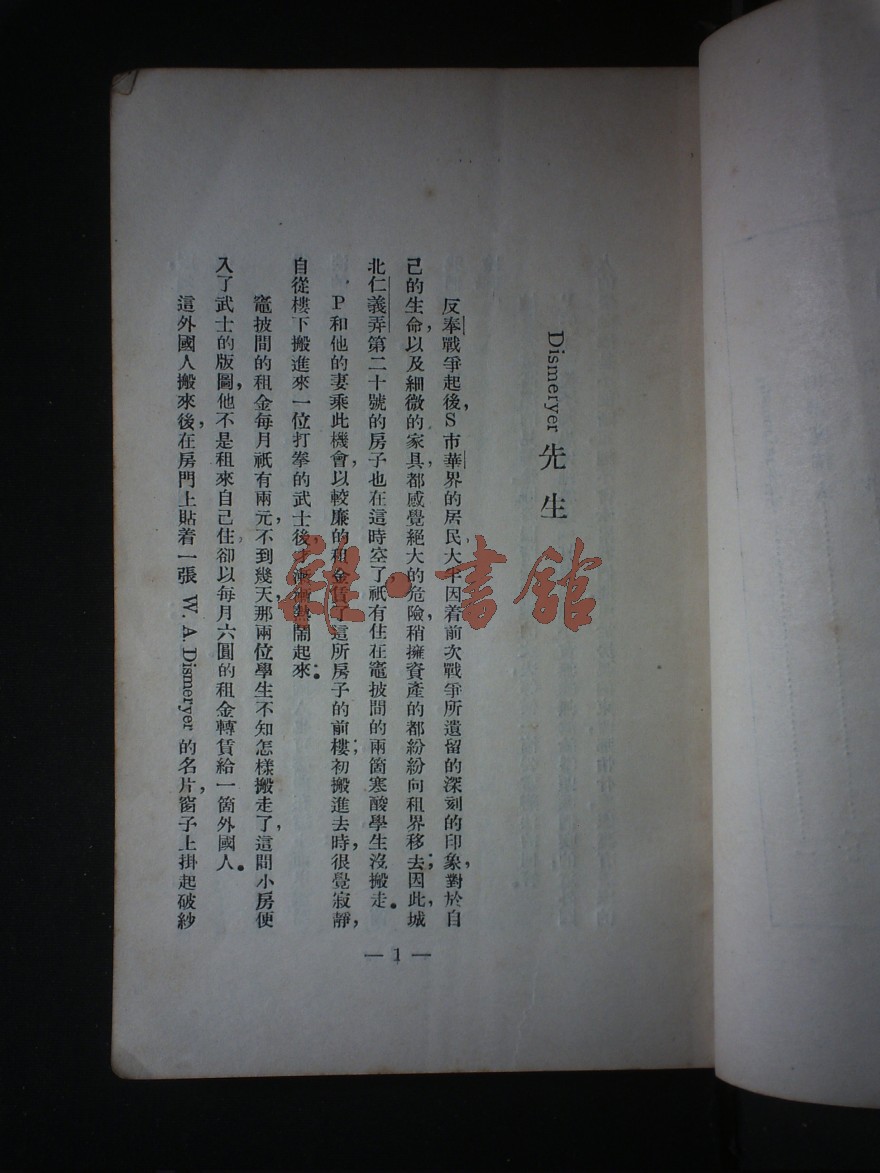 Dismeryer 先生
反奉戰爭起後，S市華界的居民大半因着前次戰爭所遺留的深刻的印象，對於自
己的生命，以及細微的家具，都感覺絕大的危險，稍擁資產的都紛紛向租界移去；因此，城
北仁義弄第二十號的房子也在這時空了，祇有住在竈披間的兩箇寒酸學生沒搬走。
P和他的妻乘此機會，以較廉的租金賃了這所房子的前樓；初搬進去時，很覺寂靜，
自從樓下搬進來一位打拳的武士後，才漸漸熱鬧起來。
竈披間的租金每月祇有兩元，不到幾天，那兩位學生不知怎樣搬走了，這間小房便
入了武士的版圖，他不是租來自己住，卻以每月六圓的租金轉賃給一箇外國人。
這外國人搬來後，在房門上貼着一張 W. A. Dismeryer 的名片，窗子上掛起破紗
— 1 —
雜·書館